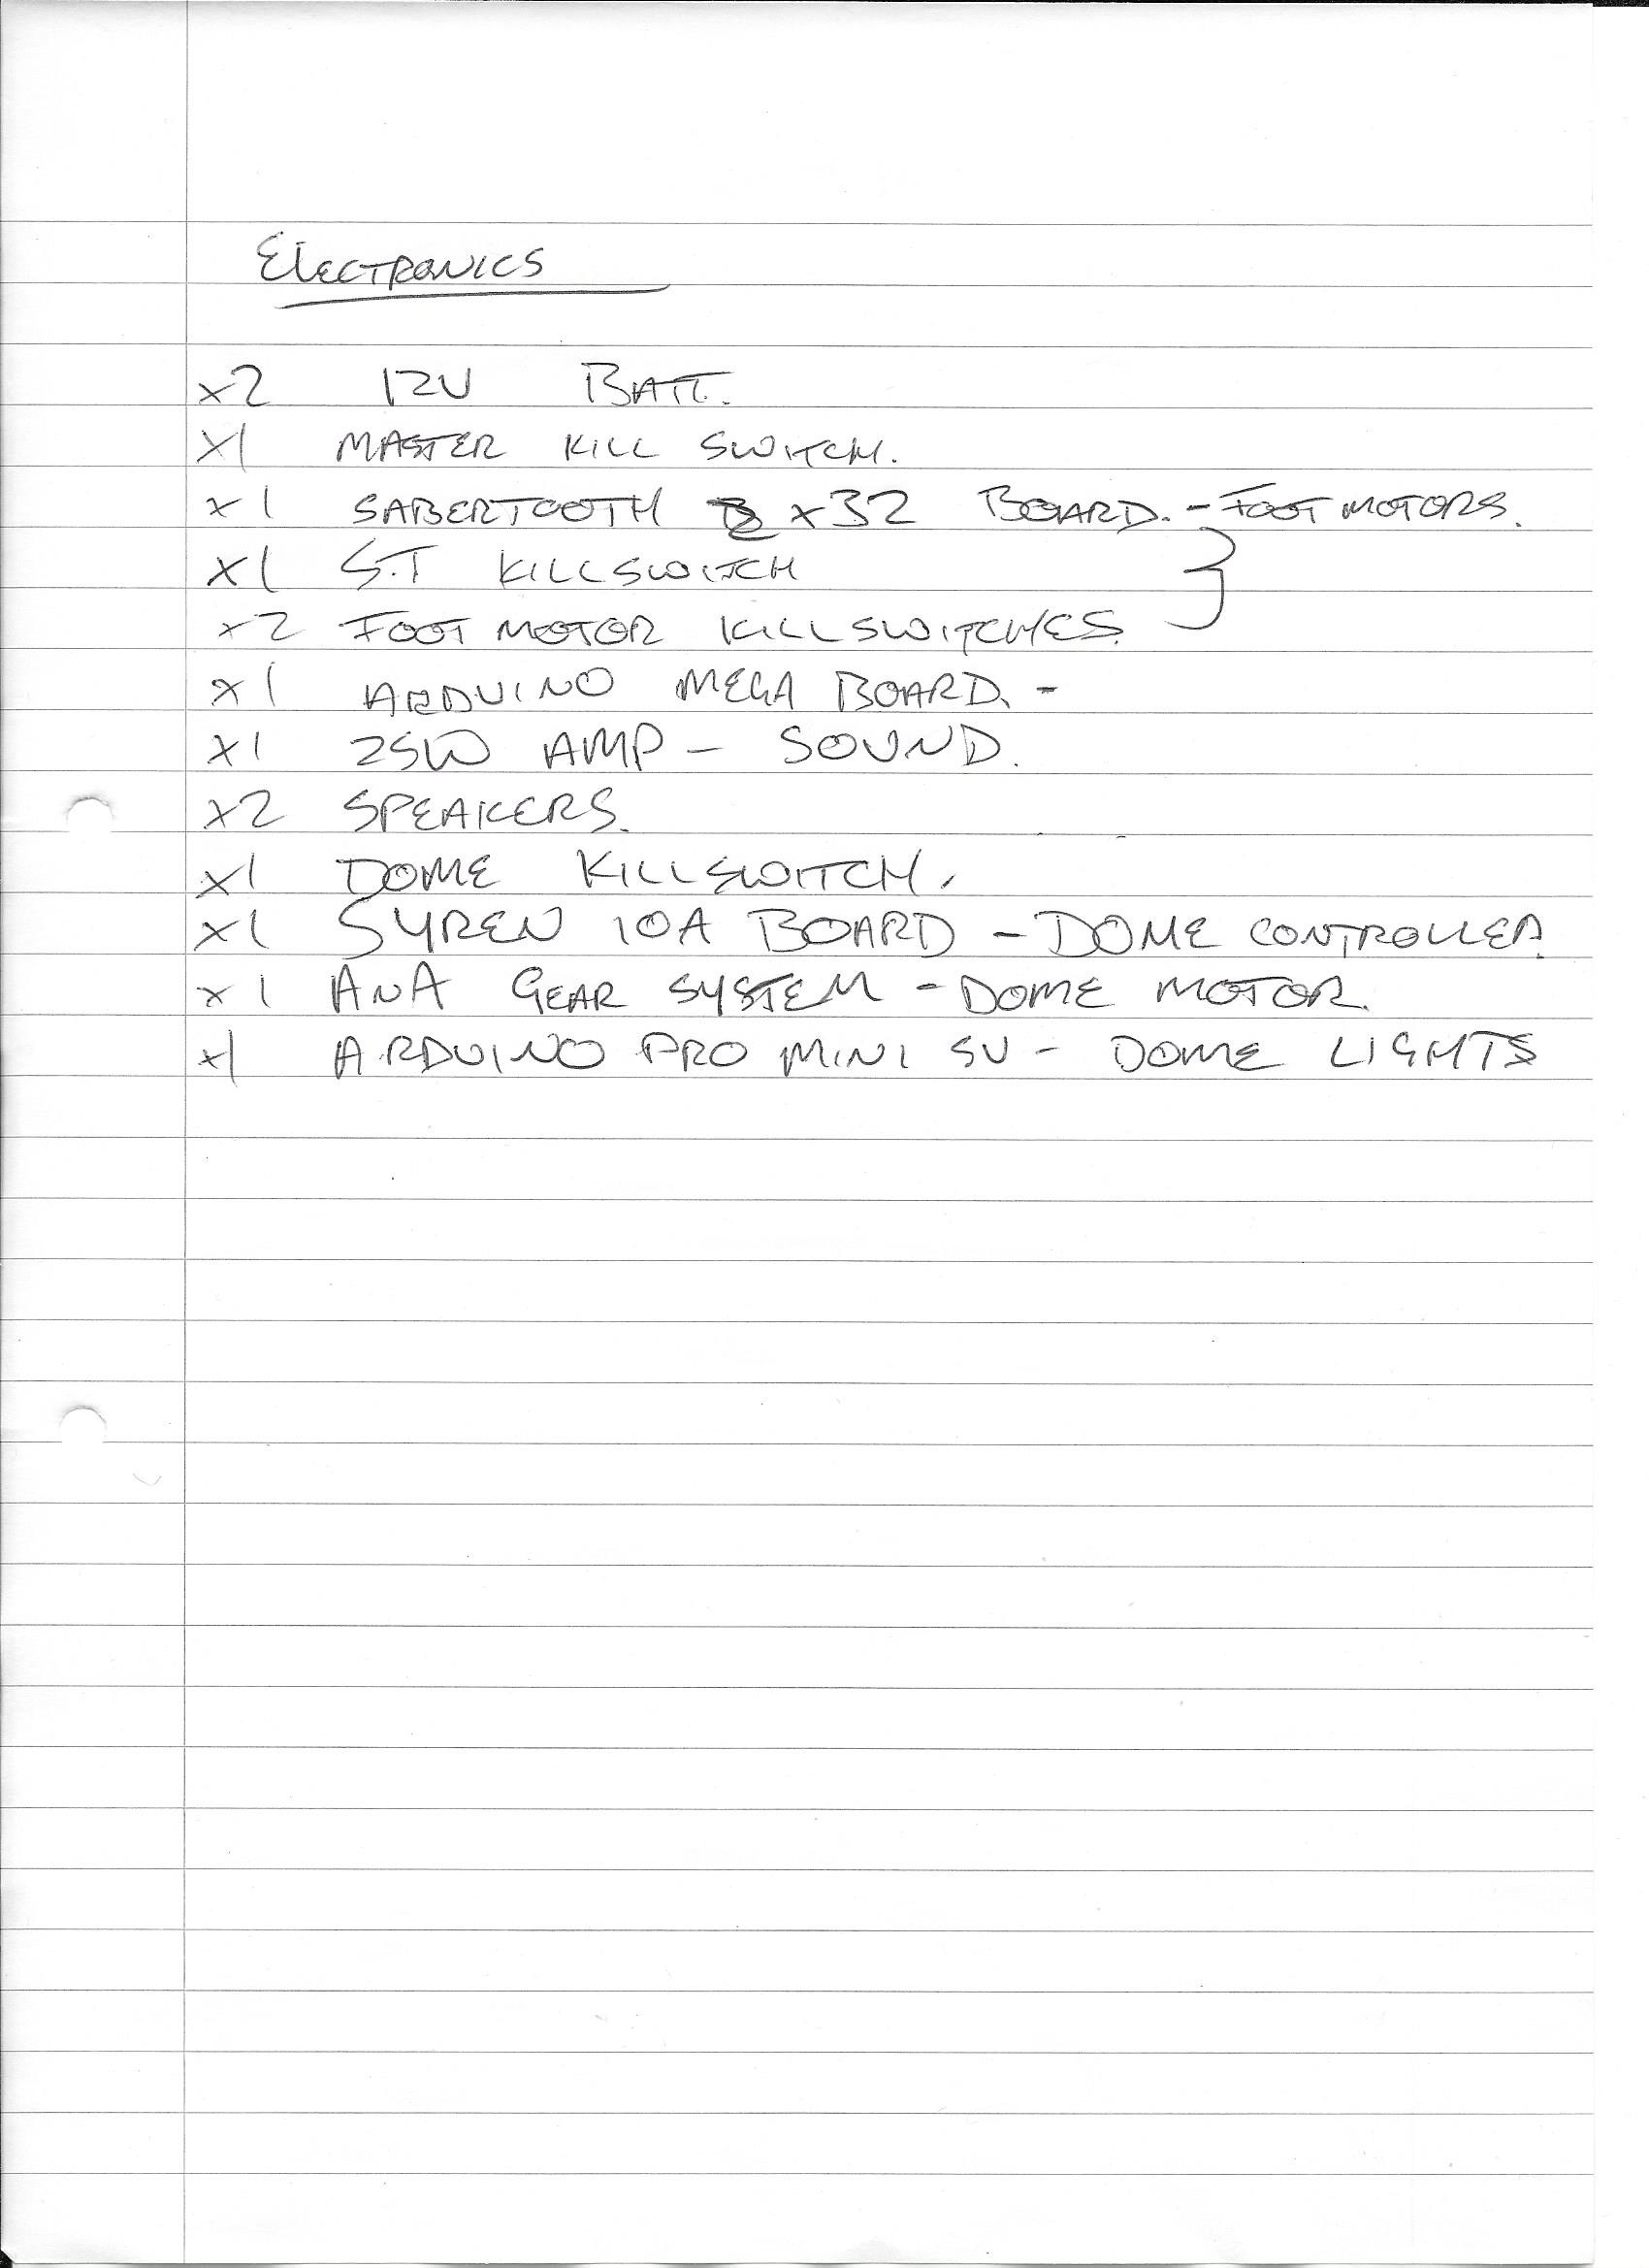 ELECTRONICS
x2 12V BATT.
x1 MASTER KILL SWITCH.
x1 SABERTOOTH 2 x32 BOARD. - FOOT MOTORS.
x1 S.T KILLSWITCH }
x2 FOOT MOTOR KILLSWITCHES.
x1 ARDUINO MEGA BOARD. -
x1 25W AMP - SOUND.
x2 SPEAKERS.
x1 DOME KILLSWITCH.
x1 SYREN 10A BOARD - DOME CONTROLLER.
x1 ANA GEAR SYSTEM - DOME MOTOR.
x1 ARDUINO PRO MINI 5V - DOME LIGHTS